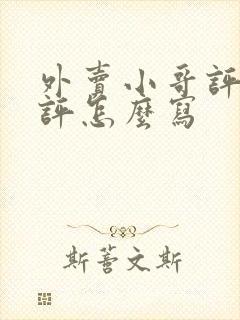 外賣小哥評
評怎麼寫
斯蕾文斯